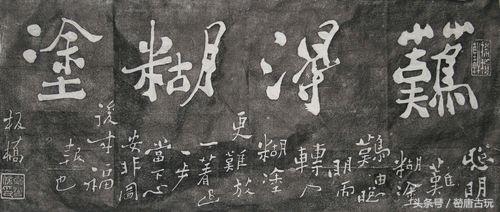 難得糊塗
聰明
難
糊塗
難由聰
明而
轉入
糊塗
更難放
一著退
一步
當下心
安非圖
後来福
報也
板橋
头条号 / 唐古玩